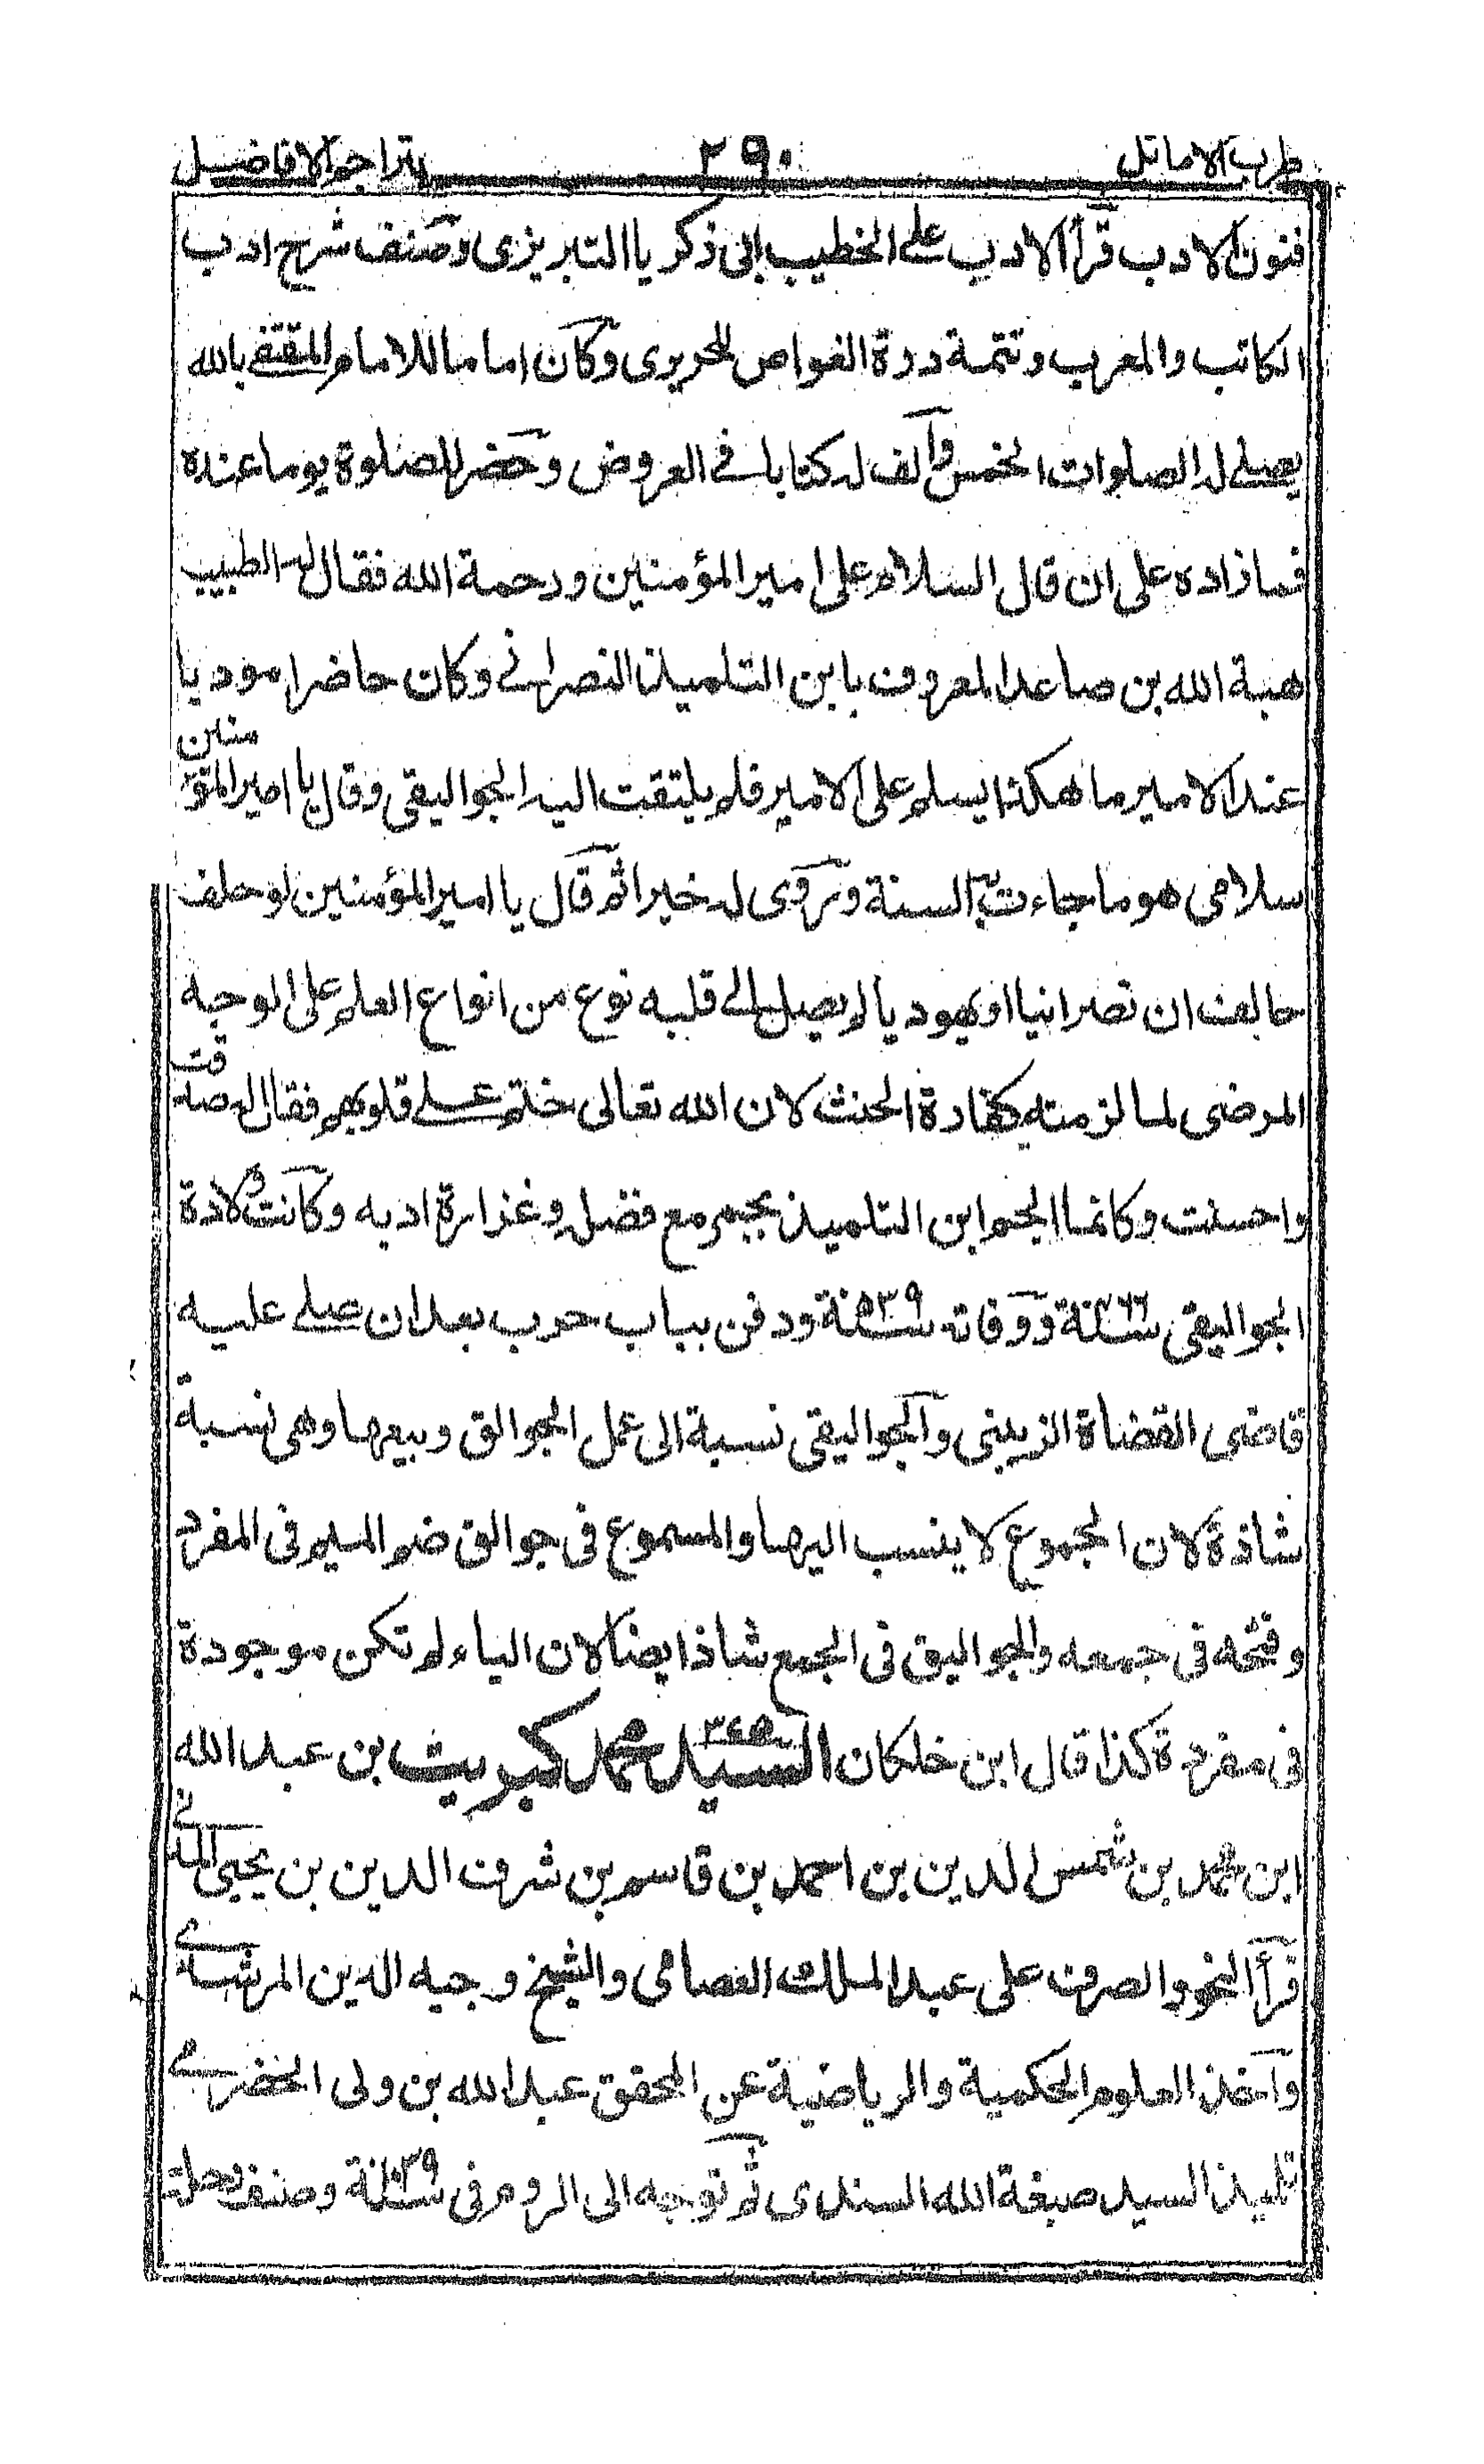 طرب الاماثل ٢٩٠ بتراجم الافاضل
فنون الادب قرأ الادب على الخطيب ابى ذكريا التبريزى وصنف شرح ادب
الكاتب والمعرب وتتمة درة الغواص للحريرى وكان اماما للامام المقتفے بالله
يصلے له الصلوات الخمس وآلف له كتابا فے العروض وحضر للصلوة يوما عنده
فما زاده على ان قال السلام على امير المؤمنين ورحمة الله فقال له الطبيب
هبة الله بن صاعد المعروف بابن التلميذ النصرانے وكان حاضرا موديا
عند الامير ما هكذا يسلم على الامير فلم يلتفت اليه الجواليقى وقال يا امير المؤمنين
سلامى هو ما جاءت به السنة وروى له خبرا ثم قال يا امير المؤمنين لو حلف
حالف ان نصرانيا او يهوديا لم يصل الے قلبه نوع من انواع العلم على الوجه
المرضى لما لزمته كفارة الحنث لان الله تعالى ختم علے قلوبهم فقال له صدقت
واحسنت وكانما الجم ابن التلميذ بحجر مع فضله وغزارة ادبه وكانت ولادة
الجواليقى سنة ٤٦٦ ووفاته سنة ٥٣٩ ودفن بباب حرب بعد ان صلے عليه
قاضى القضاة الزينبى والجواليقى نسبة الى عمل الجوالق وبيعها وهى نسبة
شاذة لان الجموع لا ينسب اليها والمسموع فى جوالق ضم الميم فى المفرد
وفتحه فى جمعه والجواليق فى الجمع شاذ ايضا لان الياء لم تكن موجودة
فى مفرده كذا قال ابن خلكان السيد محمد كبريث بن عبد الله
ابن محمد بن شمس الدين بن احمد بن قاسم بن شرف الدين بن يحيى المدنے
قرأ النحو والصرف على عبد الملك العصامى والشيخ وجيه الدين المرشدے
وآخذ العلوم الحكمية والرياضية عن المحقق عبد الله بن ولى الحضرمے
تلميذ السيد صبغة الله السندى ثم توجه الى الروم فى سنة ١٠٣٩ وصنف رحلة